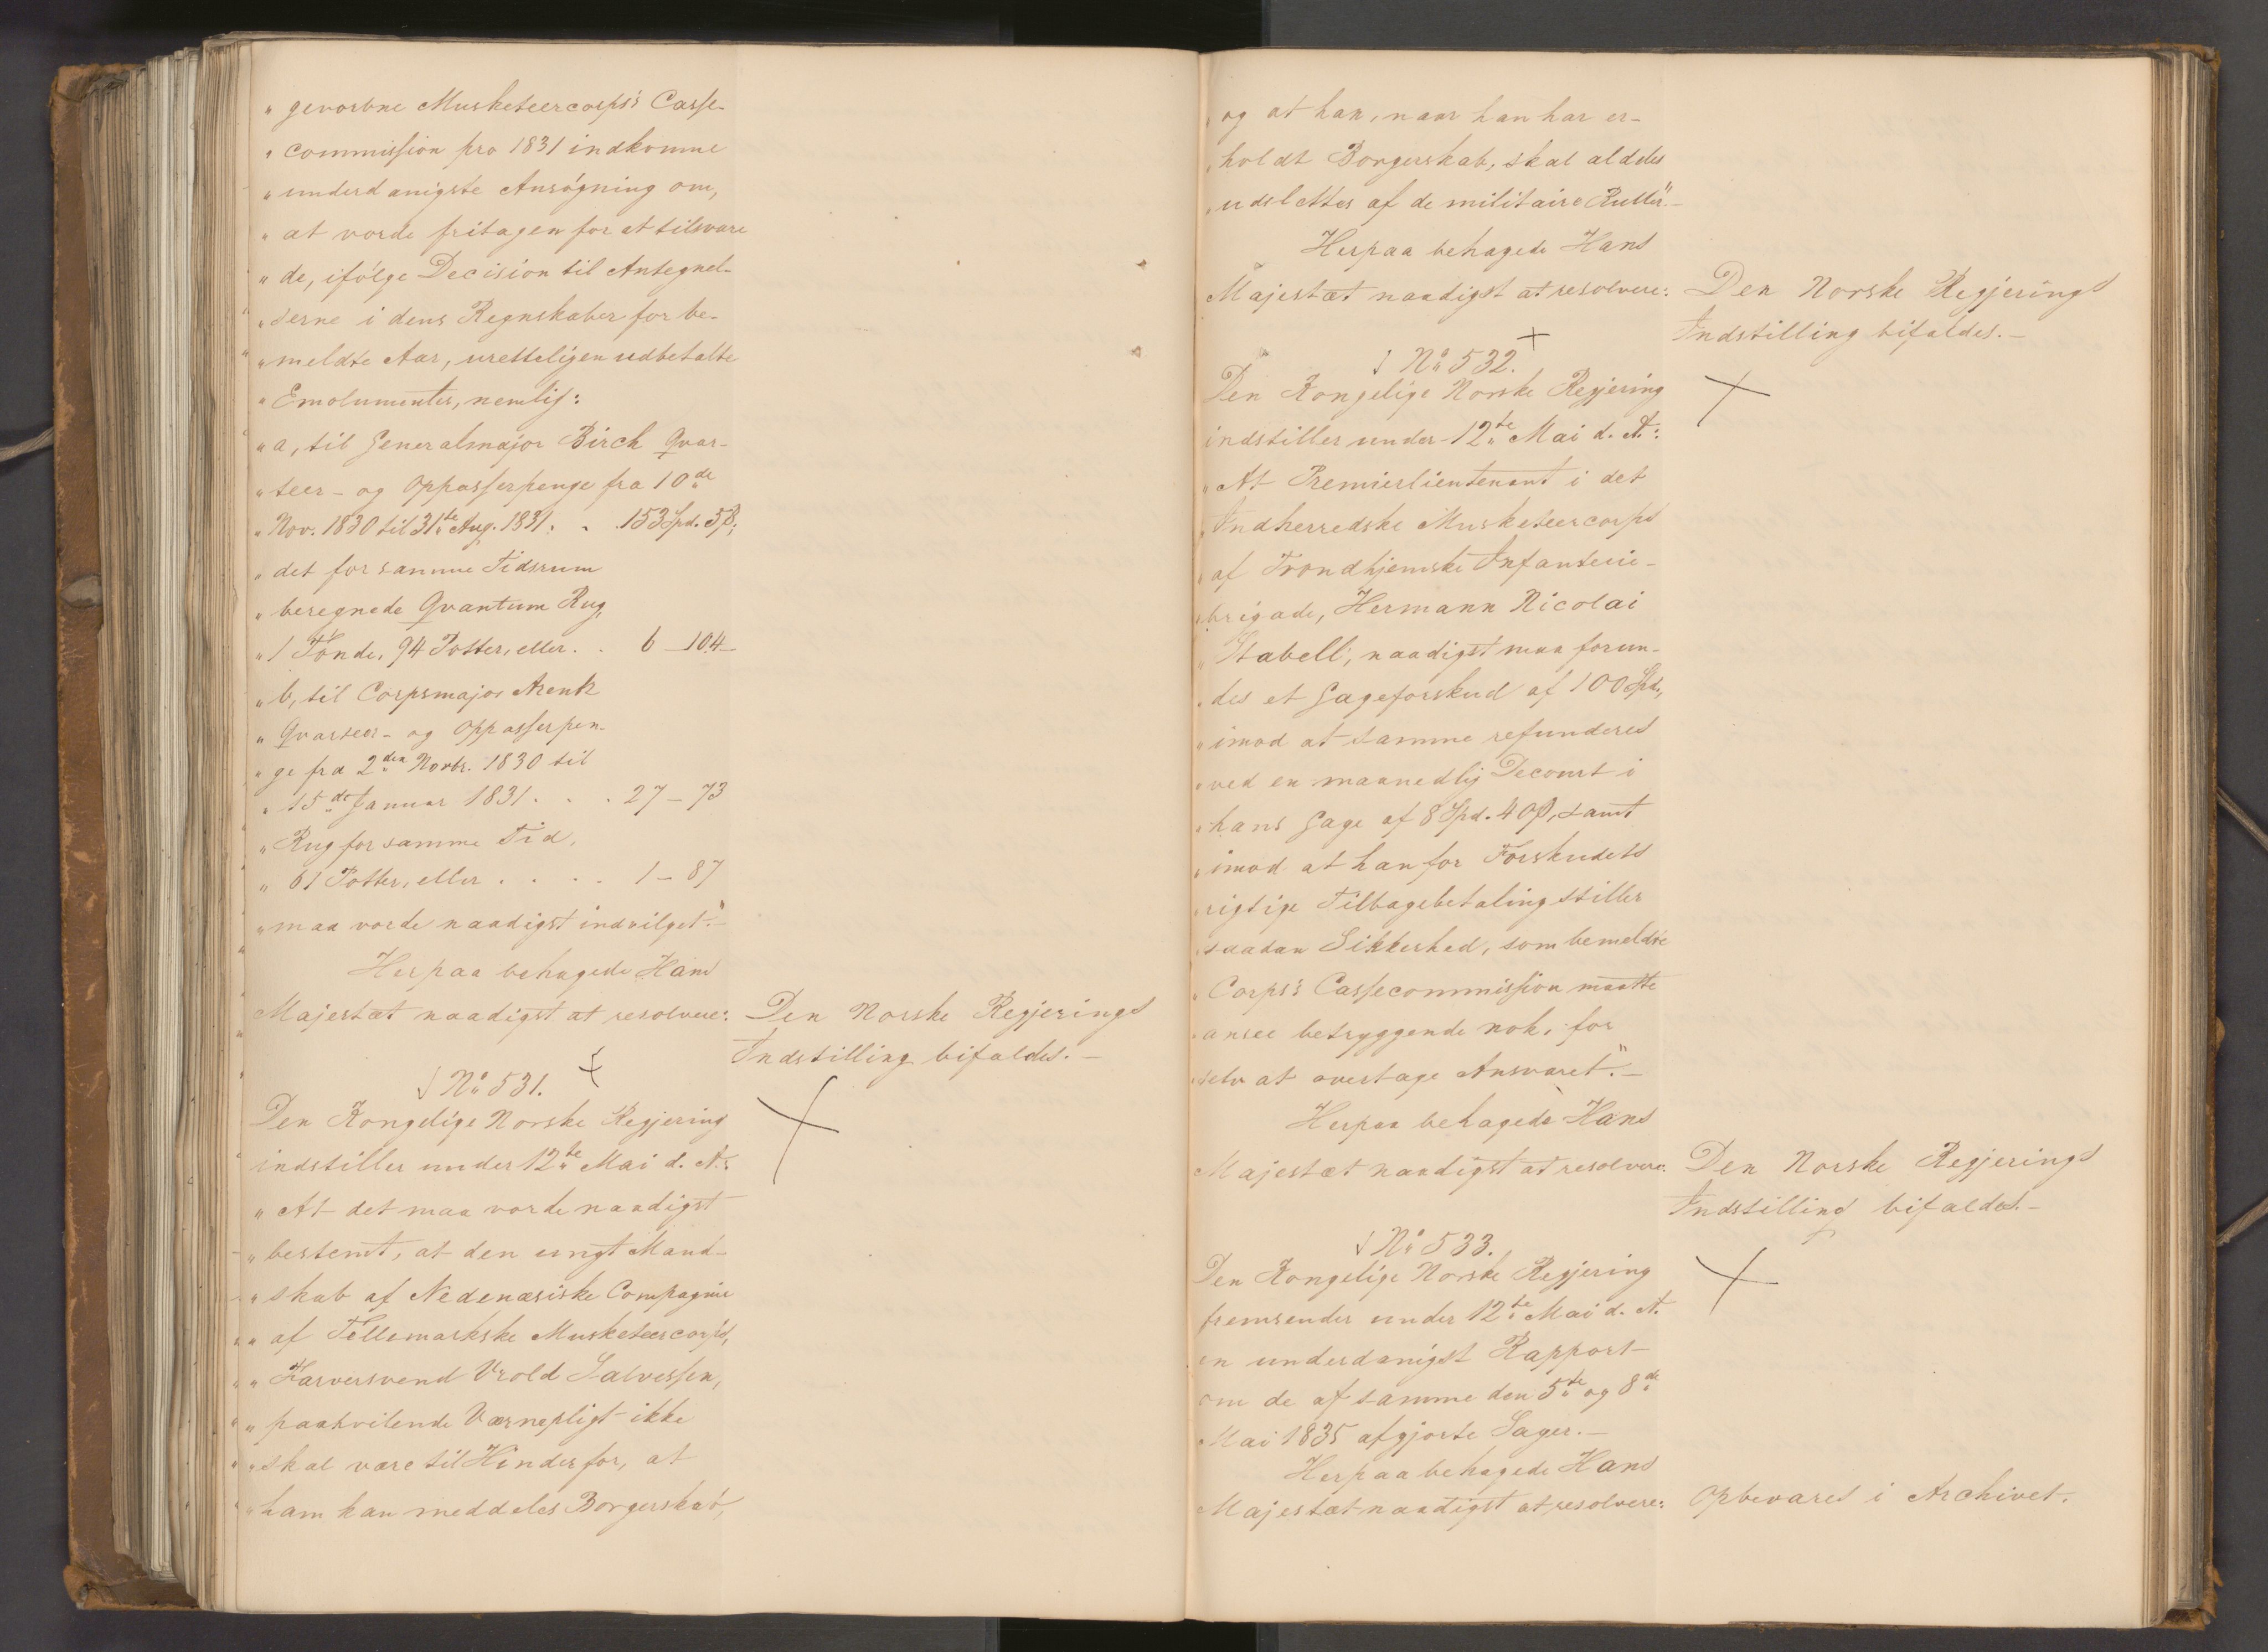 „gevorbne Musketeercorps's Casse-
„commission pro 1831 indkomne
„underdanigste Ansøgning om,
„at vorde fritagen for at tilsvare
„de, ifølge Decision til Antegnel-
„serne i dens Regnskaber for be-
„meldte Aar, uretteligen udbetalte
„Emolumenter, nemlig:
„a, til Generalmajor Birch Qvar-
„teer- og Oppasserpenge fra 10de
„Nov. 1830 til 31te Aug. 1831. . 153 Spd. 58ß;
„det for samme Tidsrum
„beregnede Qvantum Rug,
„1 Tønde, 94 Potter, eller . . 6 – 104 –
„b, til Corpsmajor Arenk
„Qvarteer- og Oppasserpen-
„ge fra 2den Novbr. 1830 til
„15de Januar 1831 . . . 27 – 73
„Rug for samme Tid,
„61 Potter, eller . . . . 1 – 87
„maa vorde naadigst indvilget."–
Herpaa behagede Hans
Majestæt naadigst at resolvere:
Den Norske Regjerings
Indstilling bifaldes. –
No 531.
Den Kongelige Norske Regjering
indstiller under 12te Mai d. A.:
„At det maa vorde naadigst
„bestemt, at den ungt Mand-
„skab af Nedenæsiske Compagnie
„af Tellemarkske Musketeercorps,
„Farversvend Vrold Salvessen,
„paahvilende Værnepligt ikke
„skal være til Hinder for, at
„ham kan meddeles Borgerskab,
„og at han, naar han har er-
„holdt Borgerskab, skal aldeles
„udslettes af de militaire Ruller".–
Herpaa behagede Hans
Majestæt naadigst at resolvere:
Den Norske Regjerings
Indstilling bifaldes. –
No 532.
Den Kongelige Norske Regjering
indstiller under 12te Mai d. A.:
„At Premierlieutenant i det
„Indherredske Musketeercorps
„af Trondhjemske Infanterie-
„brigade, Hermann Nicolai
„Stabell, naadigst maa forun-
„des et Gageforskud af 100 Spd.,
„imod at samme refunderes
„ved en maanedlig Decourt i
„hans Gage af 8 Spd. 40ß, samt
„imod at han for Forskudets
„rigtige Tilbagebetaling stiller
„saadan Sikkerhed, som bemeldte
„Corps's Cassecommission maatte
„ansee betryggende nok, for
„selv at overtage Ansvaret". –
Herpaa behagede Hans
Majestæt naadigst at resolvere:
Den Norske Regjerings
Indstilling bifaldes. –
No 533.
Den Kongelige Norske Regjering
fremsender under 12te Mai d. A.
en underdanigst Rapport
om de af samme den 5te og 8de
Mai 1835 afgjorte Sager. –
Herpaa behagede Hans
Majestæt naadigst at resolvere:
Opbevares i Archivet.